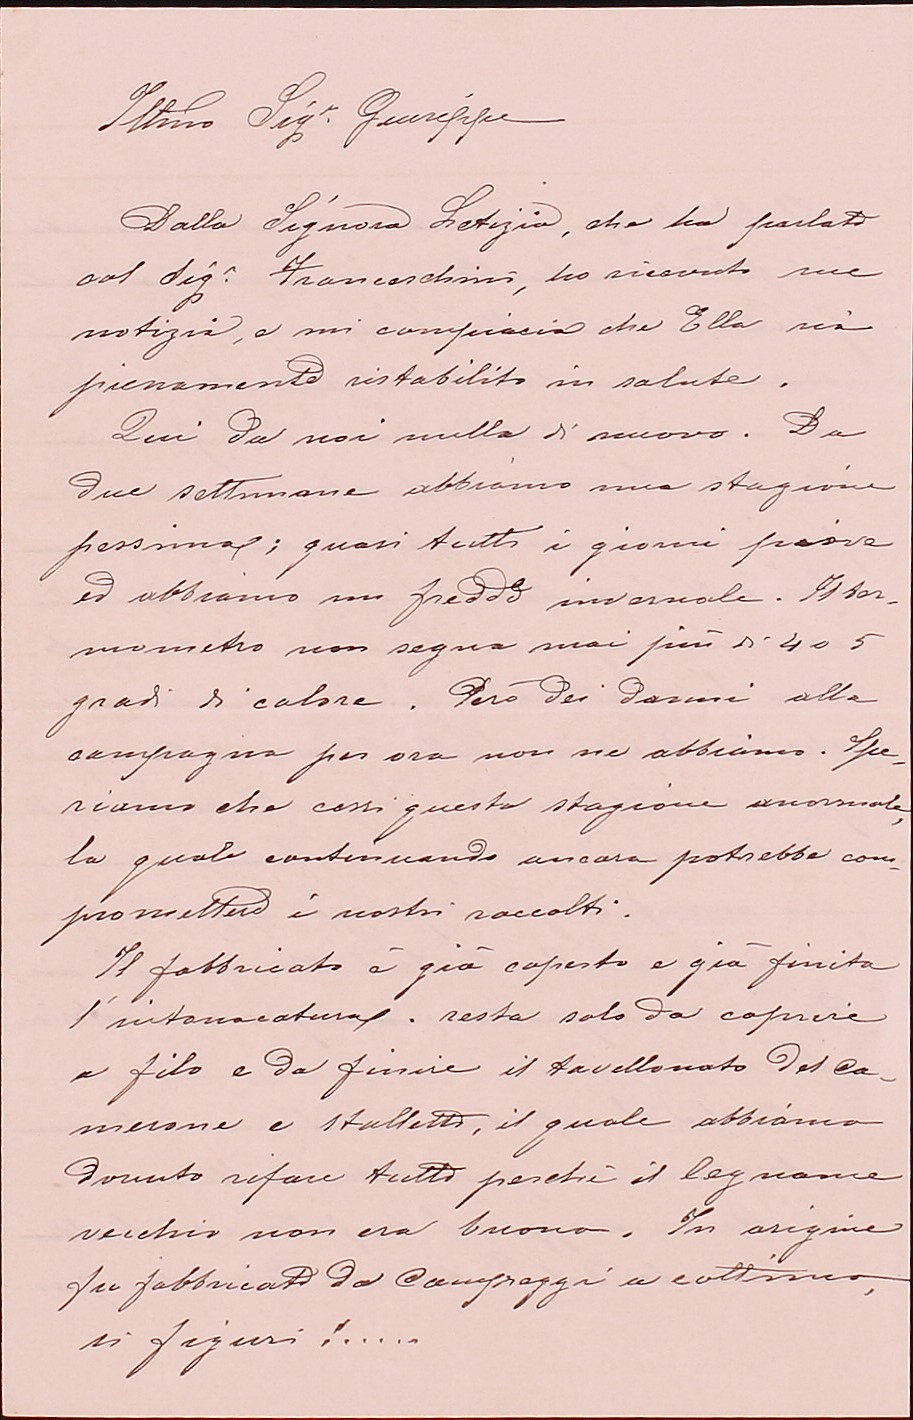 Illmo Sigr. Giuseppe
Dalla Signora Letizia, che ha parlato
col Sigr. Franceschini, ho ricevuto sue
notizie, e mi compiaccio che Ella sia
pienamente ristabilito in salute.
Qui da noi nulla di nuovo. Da
due settimane abbiamo una stagione
pessima; quasi tutti i giorni piove
ed abbiamo un freddo invernale. Il ter-
mometro non segna mai più di 4 o 5
gradi di calore. Però dei danni alla
campagna per ora non ne abbiamo. Spe-
riamo che cessi questa stagione anormale,
la quale continuando ancora potrebbe com-
promettere i nostri raccolti.
Il fabbricato è già coperto e già finita
l'intonacatura. resta solo da coprire
a filo e da finire il tavellonato del Ca-
merone e Stalletto, il quale abbiamo
dovuto rifare tutto perchè il legname
vecchio non era buono. In origine
fu fabbricato da Campeggi a cottimo,
si figuri!.....